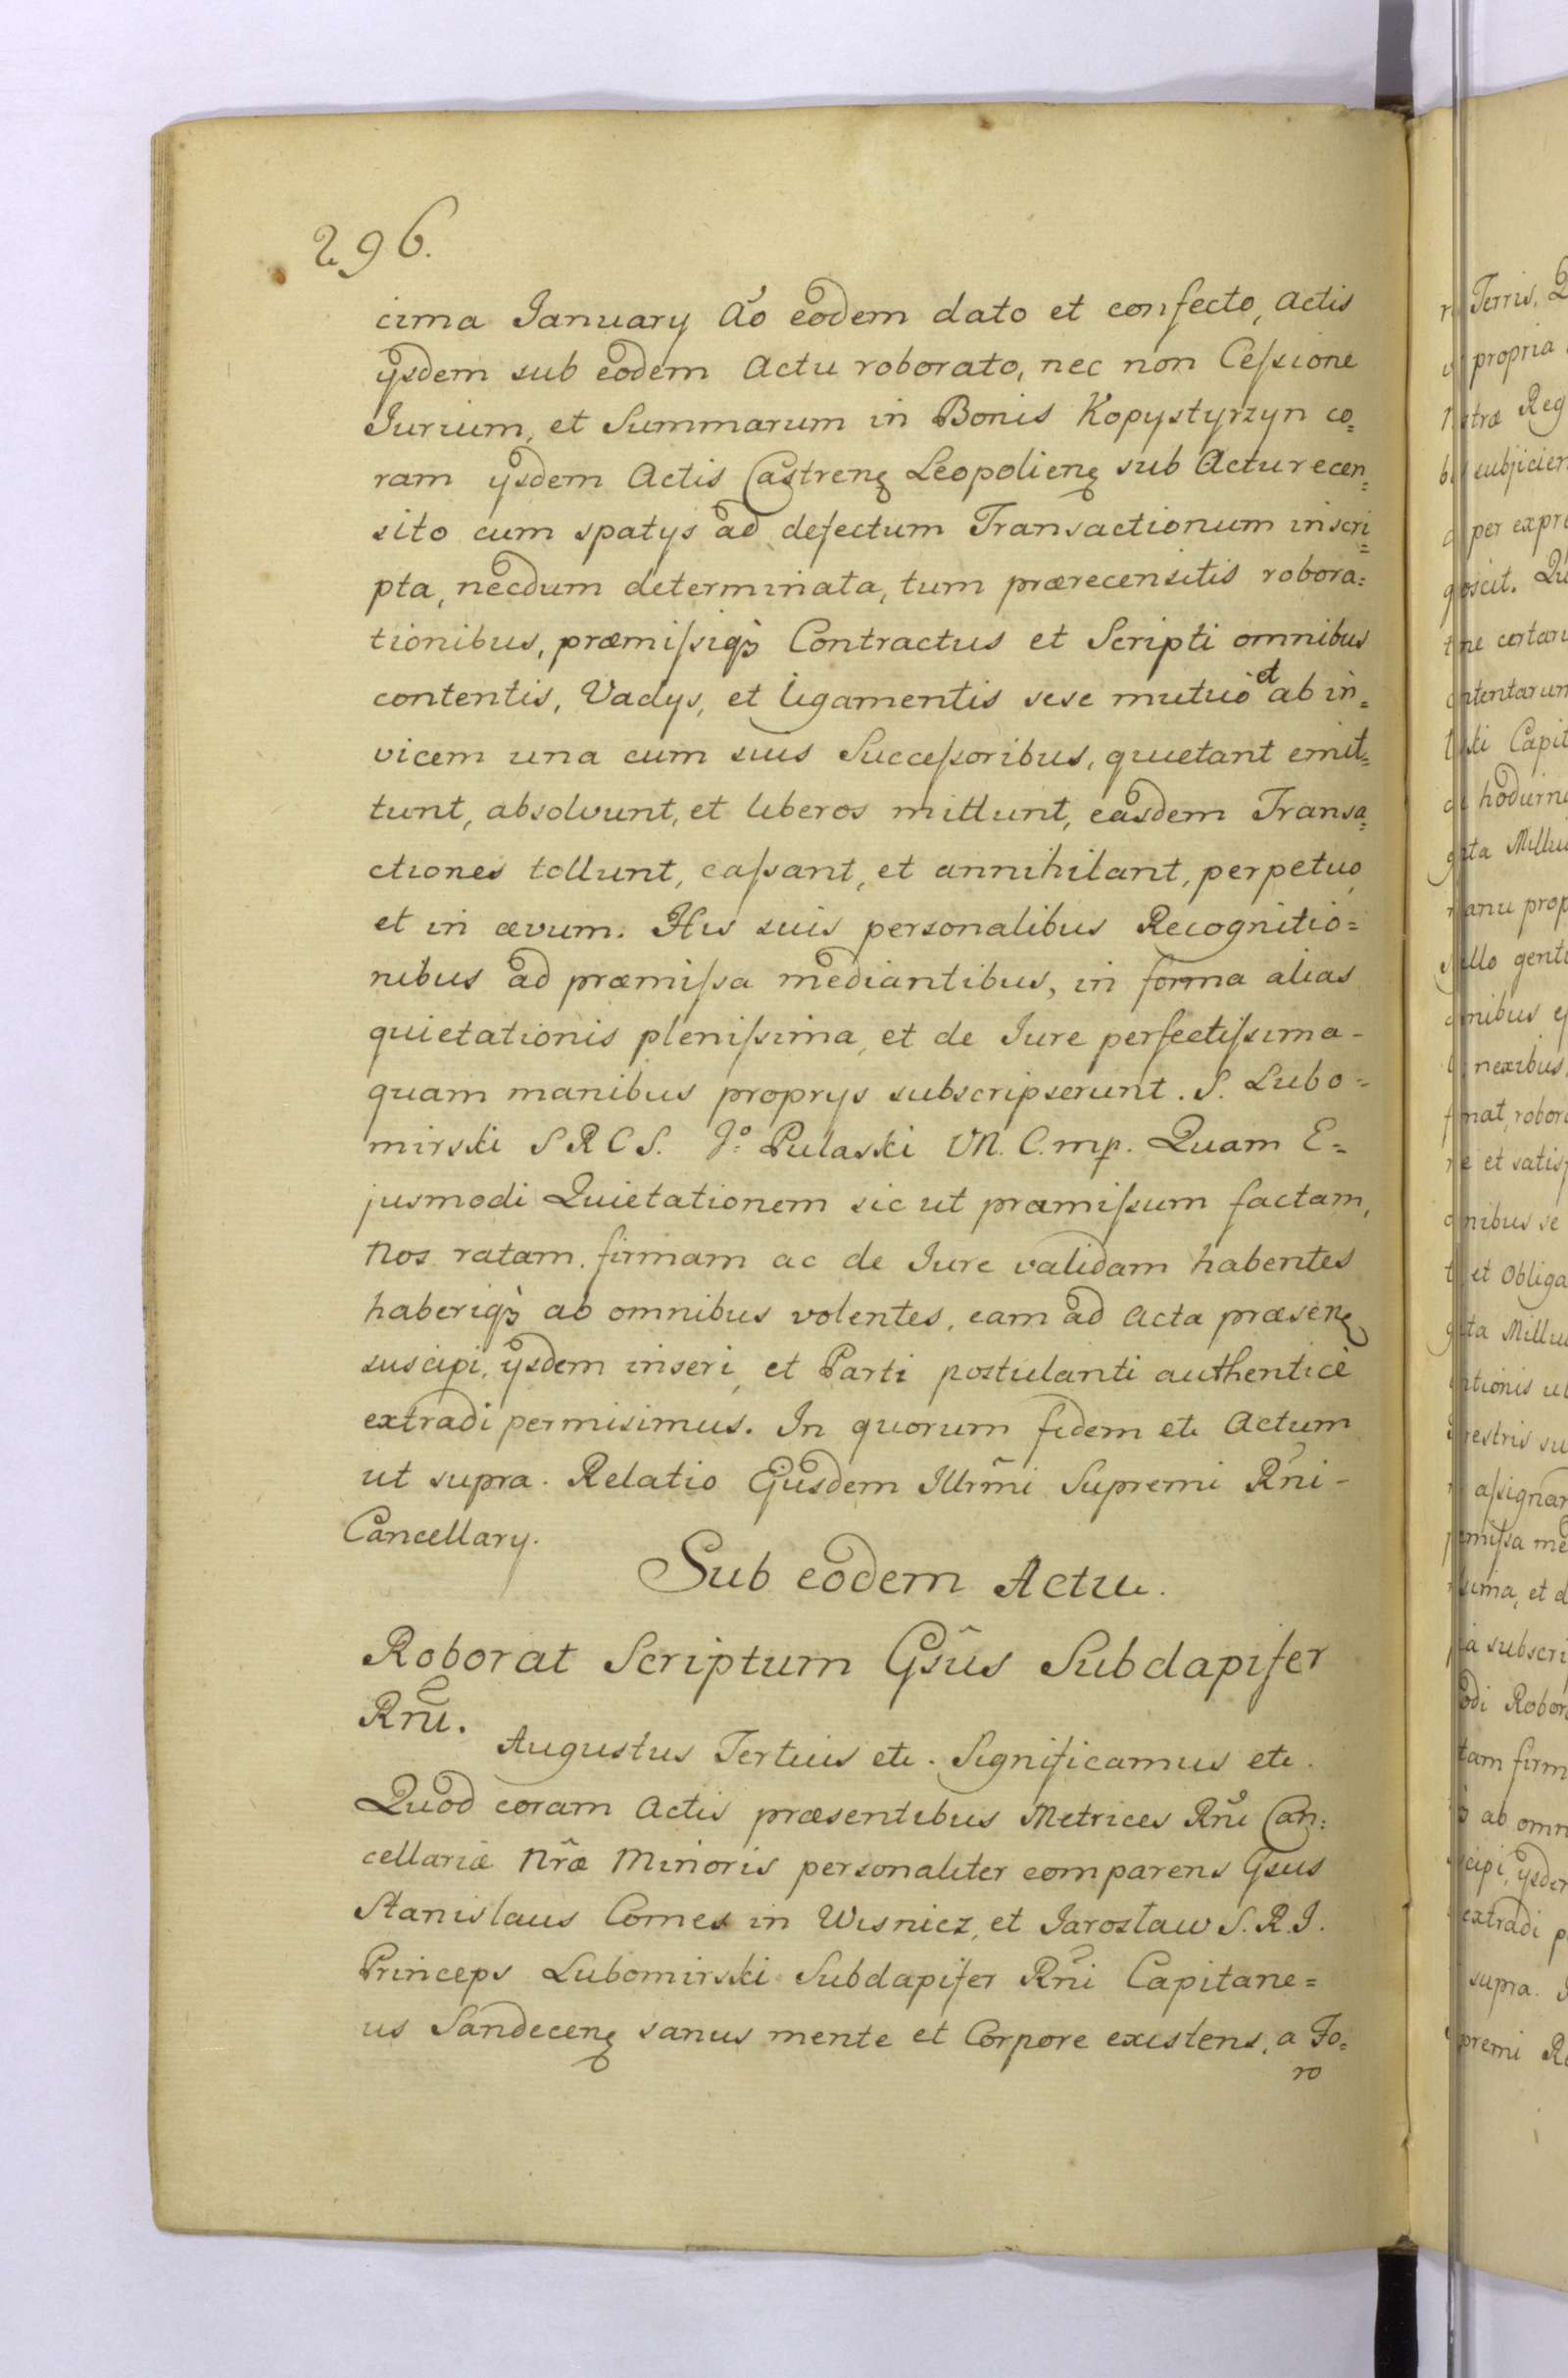 296.
cima January Aõ eodem dato et confecto, Actis
ijsdem sub eodem Actu roborato, nec non Ceſsione
Jurium, et Summarum in Bonis Kopystyrzyn co=
ram ijsdem Actis Castrenę Leopolienę sub Actu recen=
sito cum spatijs ad defectum Transactionum inscri=
pta, necdum determinata, tum prærecensitis robora=
tionibus, præmiſsiqꝫ Contractus et Scripti omnibus
contentis, Vadys, et ligamentis sese mutuo et ab in=
vicem una cum suis Succeſsoribus, quietant emit=
tunt, absolvunt, et liberos mittunt, easdem Transa=
ctiones tollunt, caſsant, et annihilant, perpetuo
et in ævum. His suis personalibus Recognitio=
nibus ad præmiſsa mediantibus, in forma alias
quietationis pleniſsima, et de Jure perfectiſsima-
quam manibus proprys subscripserunt. S. Lubo=
mirski S R C S. Jº Pulaski VN. C. mp. Quam E=
jusmodi Quietationem sic ut præmiſsum factam,
Nos ratam, firmam ac de Jure validam habentes
haberiqꝫ ab omnibus volentes, eam ad Acta præsenę
suscipi, ijsdem inseri, et Parti postulanti authenticè
extradi permisimus. In quorum fidem etc Actum
ut supra. Relatio Ejusdem Illrm̃i Supremi Rñi-
Cancellary.
Sub eodem Actu.
Roborat Scriptum Gsũs Subdapifer
Rnũ.
Augustus Tertius etc. Significamus etc.
Quod coram Actis præsentibus Metrices Rñi Can=
cellariæ Nr̃æ Minoris personaliter comparens Gsus
Stanislaus Comes in Wisnicz, et Jarosław S. R. J.
Princeps Lubomirski Subdapifer Rñi Capitane=
us Sandecenę sanus mente et Corpore existens, a Fo=
ro